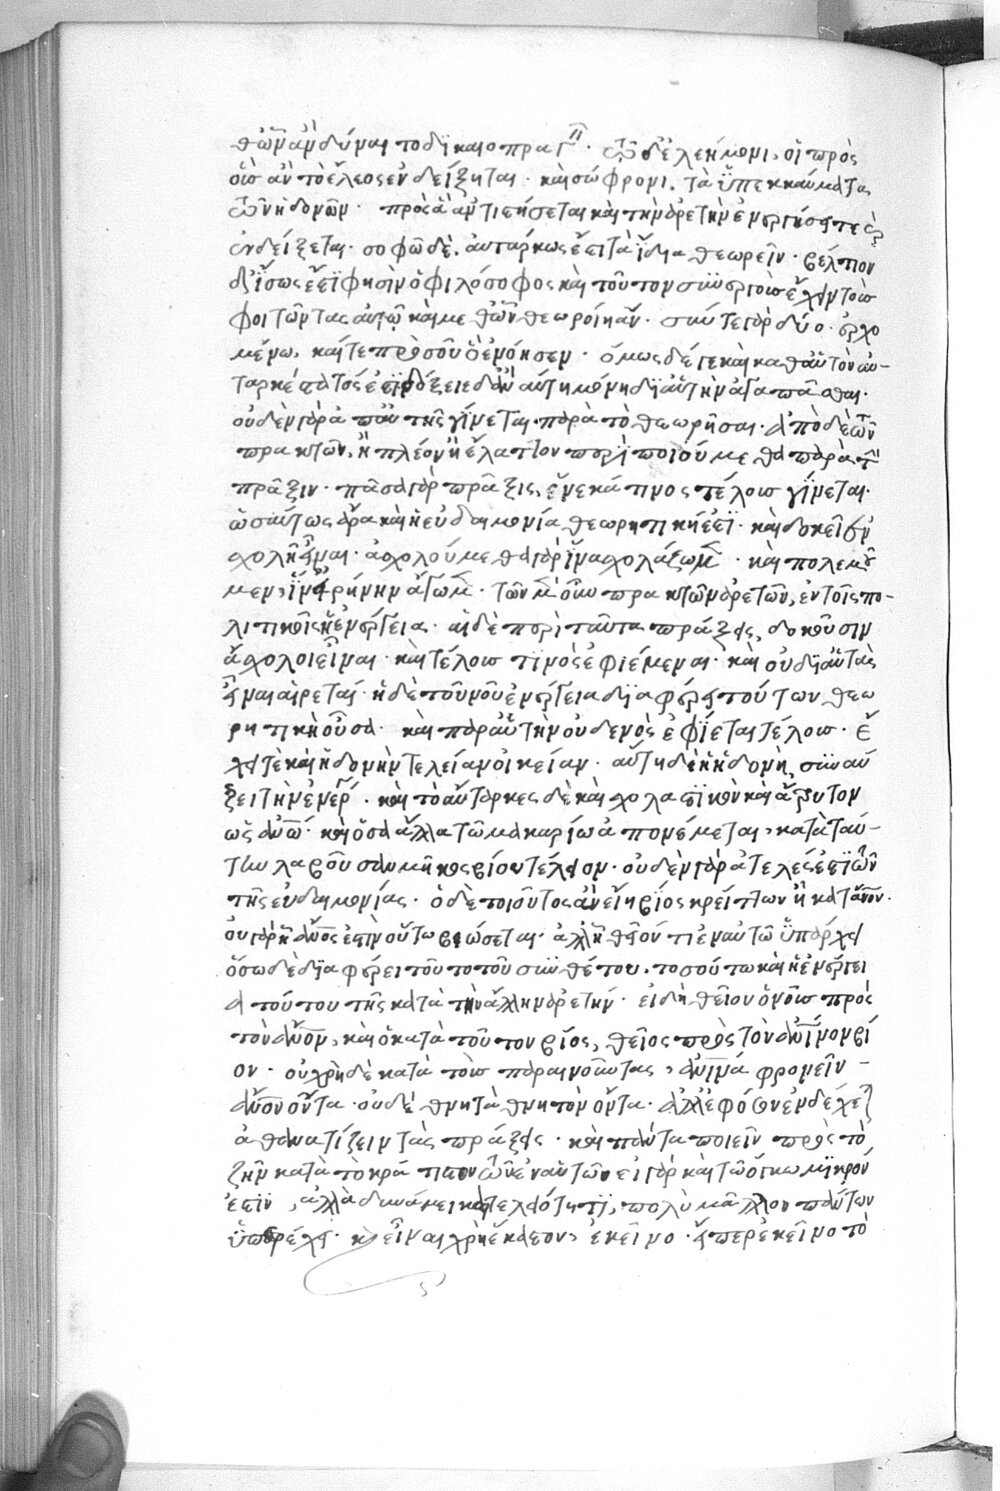 θων αν δύναι το δικαιοπραγ · τῶ δὲ ἐλεήμονι, οἱ πρὸς
οὓς ἂν τὸ ἔλεος ἐνδείξηται · καὶ σώφρονι, τὰ ὑπεκκαύματα
τῶν ἡδονῶν · πρὸς ἃ ἀντιστήσεται καὶ τὴν ἀρετὴν
ἐνδείξεται · σοφῶ δὲ, αὐτάρκως ἐστὶ τὰ ἴδια θεωρεῖν · βέλτιον
δ' ἴσως ἐστί φησὶν ὁ φιλόσοφος καὶ τοῦτον συνεργοὺς ἔχειν τοὺς
φοιτῶντας αὐτῶ καὶ μεθ' ὧν θεωροίη ἄν · σύν τε γὰρ δύο ἐρχο
μένω, καί τε πρὸ ὃ τοῦ ἐνόησεν · ὅμως δέ γε καὶ καθ' αὑτὸν αὐ-
ταρκέστατός ἐστι · δόξειε δ' ἂν αὐτὴ μόνη δι' αὑτὴν ἀγαπᾶσθαι ·
οὐδὲν γὰρ ἀπ' αὐτῆς γίνεται παρὰ τὸ θεωρῆσαι · ἀπὸ δὲ τῶν
πρακτῶν, ἢ πλέον ἢ ἔλαττον περιποιούμεθα παρὰ τὴν
πρᾶξιν · πᾶσα γὰρ πρᾶξις, ἕνεκά τινος τέλους γίνεται ·
ὡσαύτως ἄρα καὶ ἡ εὐδαιμονία θεωρητικὴ ἐστί · καὶ δοκεῖ ἐν
σχολῆ εἶναι · ἀσχολούμεθα γὰρ ἵνα σχολάζωμεν · καὶ πολεμοῦ
μεν, ἵν' εἰρήνην ἄγωμεν · τῶν μὲν οὖν πρακτῶν ἀρετῶν, ἐν τοῖς πο-
λιτικοῖς ἡ ἐνέργεια · αἱ δὲ περὶ ταῦτα πράξεις, δοκοῦσιν
ἄσχολοι εἶναι · καὶ τέλους τινὸς ἐφιέμεναι · καὶ οὐ δι' αὑτὰς
εἶναι αἱρεταί · ἡ δὲ τοῦ νοῦ ἐνέργεια διαφέρει τούτων θεω
ρητικὴ οὖσα · καὶ παρ' αὑτὴν οὐδενὸς ἐφίεται τέλους · ἔ
χει τὲ καὶ ἡδονὴν τελείαν οἰκείαν · αὕτη δὲ ἡ ἡδονὴ, συναύ
ξει τὴν ἐνέργ · καὶ τὸ αὔταρκες δὲ καὶ σχολαστικὸν καὶ ἄτρυτον
ὡς ἀνω · καὶ ὅσα ἄλλα τῶ μακαρίω ἀπονέμεται, κατὰ ταύ-
την λαβοῦσαν μῆκος βίου τέλειον · οὐδὲν γὰρ ἀτελές ἐστι τῶν
τῆς εὐδαιμονίας · ὁ δὲ τοιοῦτος ἂν εἴη βίος κρείττων ἢ κατ' ἄνον ·
οὐ γὰρ ᾗ ἄνος ἐστὶν οὕτω βιώσεται · ἀλλ' ᾗ θεῖόν τι ἐν αὐτῶ ὑπάρχει
ὅσω δὲ διαφέρει τοῦτο τοῦ συνθέτου, τοσούτω καὶ ἡ ἐνέργει
α τούτου τῆς κατὰ τὴν ἄλλην ἀρετήν · εἰ δὴ θεῖον ὁ νοῦς πρὸς
τὸν ἄνον, καὶ ὁ κατὰ τοῦτον βίος, θεῖος πρὸς τὸν ἀνινον βί
ον · οὐ χρὴ δὲ κατὰ τοὺς παραινοῦντας, ἀνινα φρονεῖν -
ἄνον ὄντα · οὐδὲ θνητὰ θνητὸν ὄντα · ἀλλ' ἐφόσον ἐνδέχεται
ἀθανατίζειν τὰς πράξεις · καὶ πάντα ποιεῖν πρὸς τὸ
ζῆν κατὰ τὸ κράτιστον τῶν ἐν αὐτῶ · εἰ γὰρ καὶ τῶ ὄγκω μικρόν
ἐστιν, ἀλλὰ δυνάμει καὶ τελειότητι, πολὺ μᾶλλον πάντων
ὑπερέχει · καὶ εἶναι χρὴ ἕκαστον, ἐκεῖνο · εἴπερ ἐκεῖνο τὸ